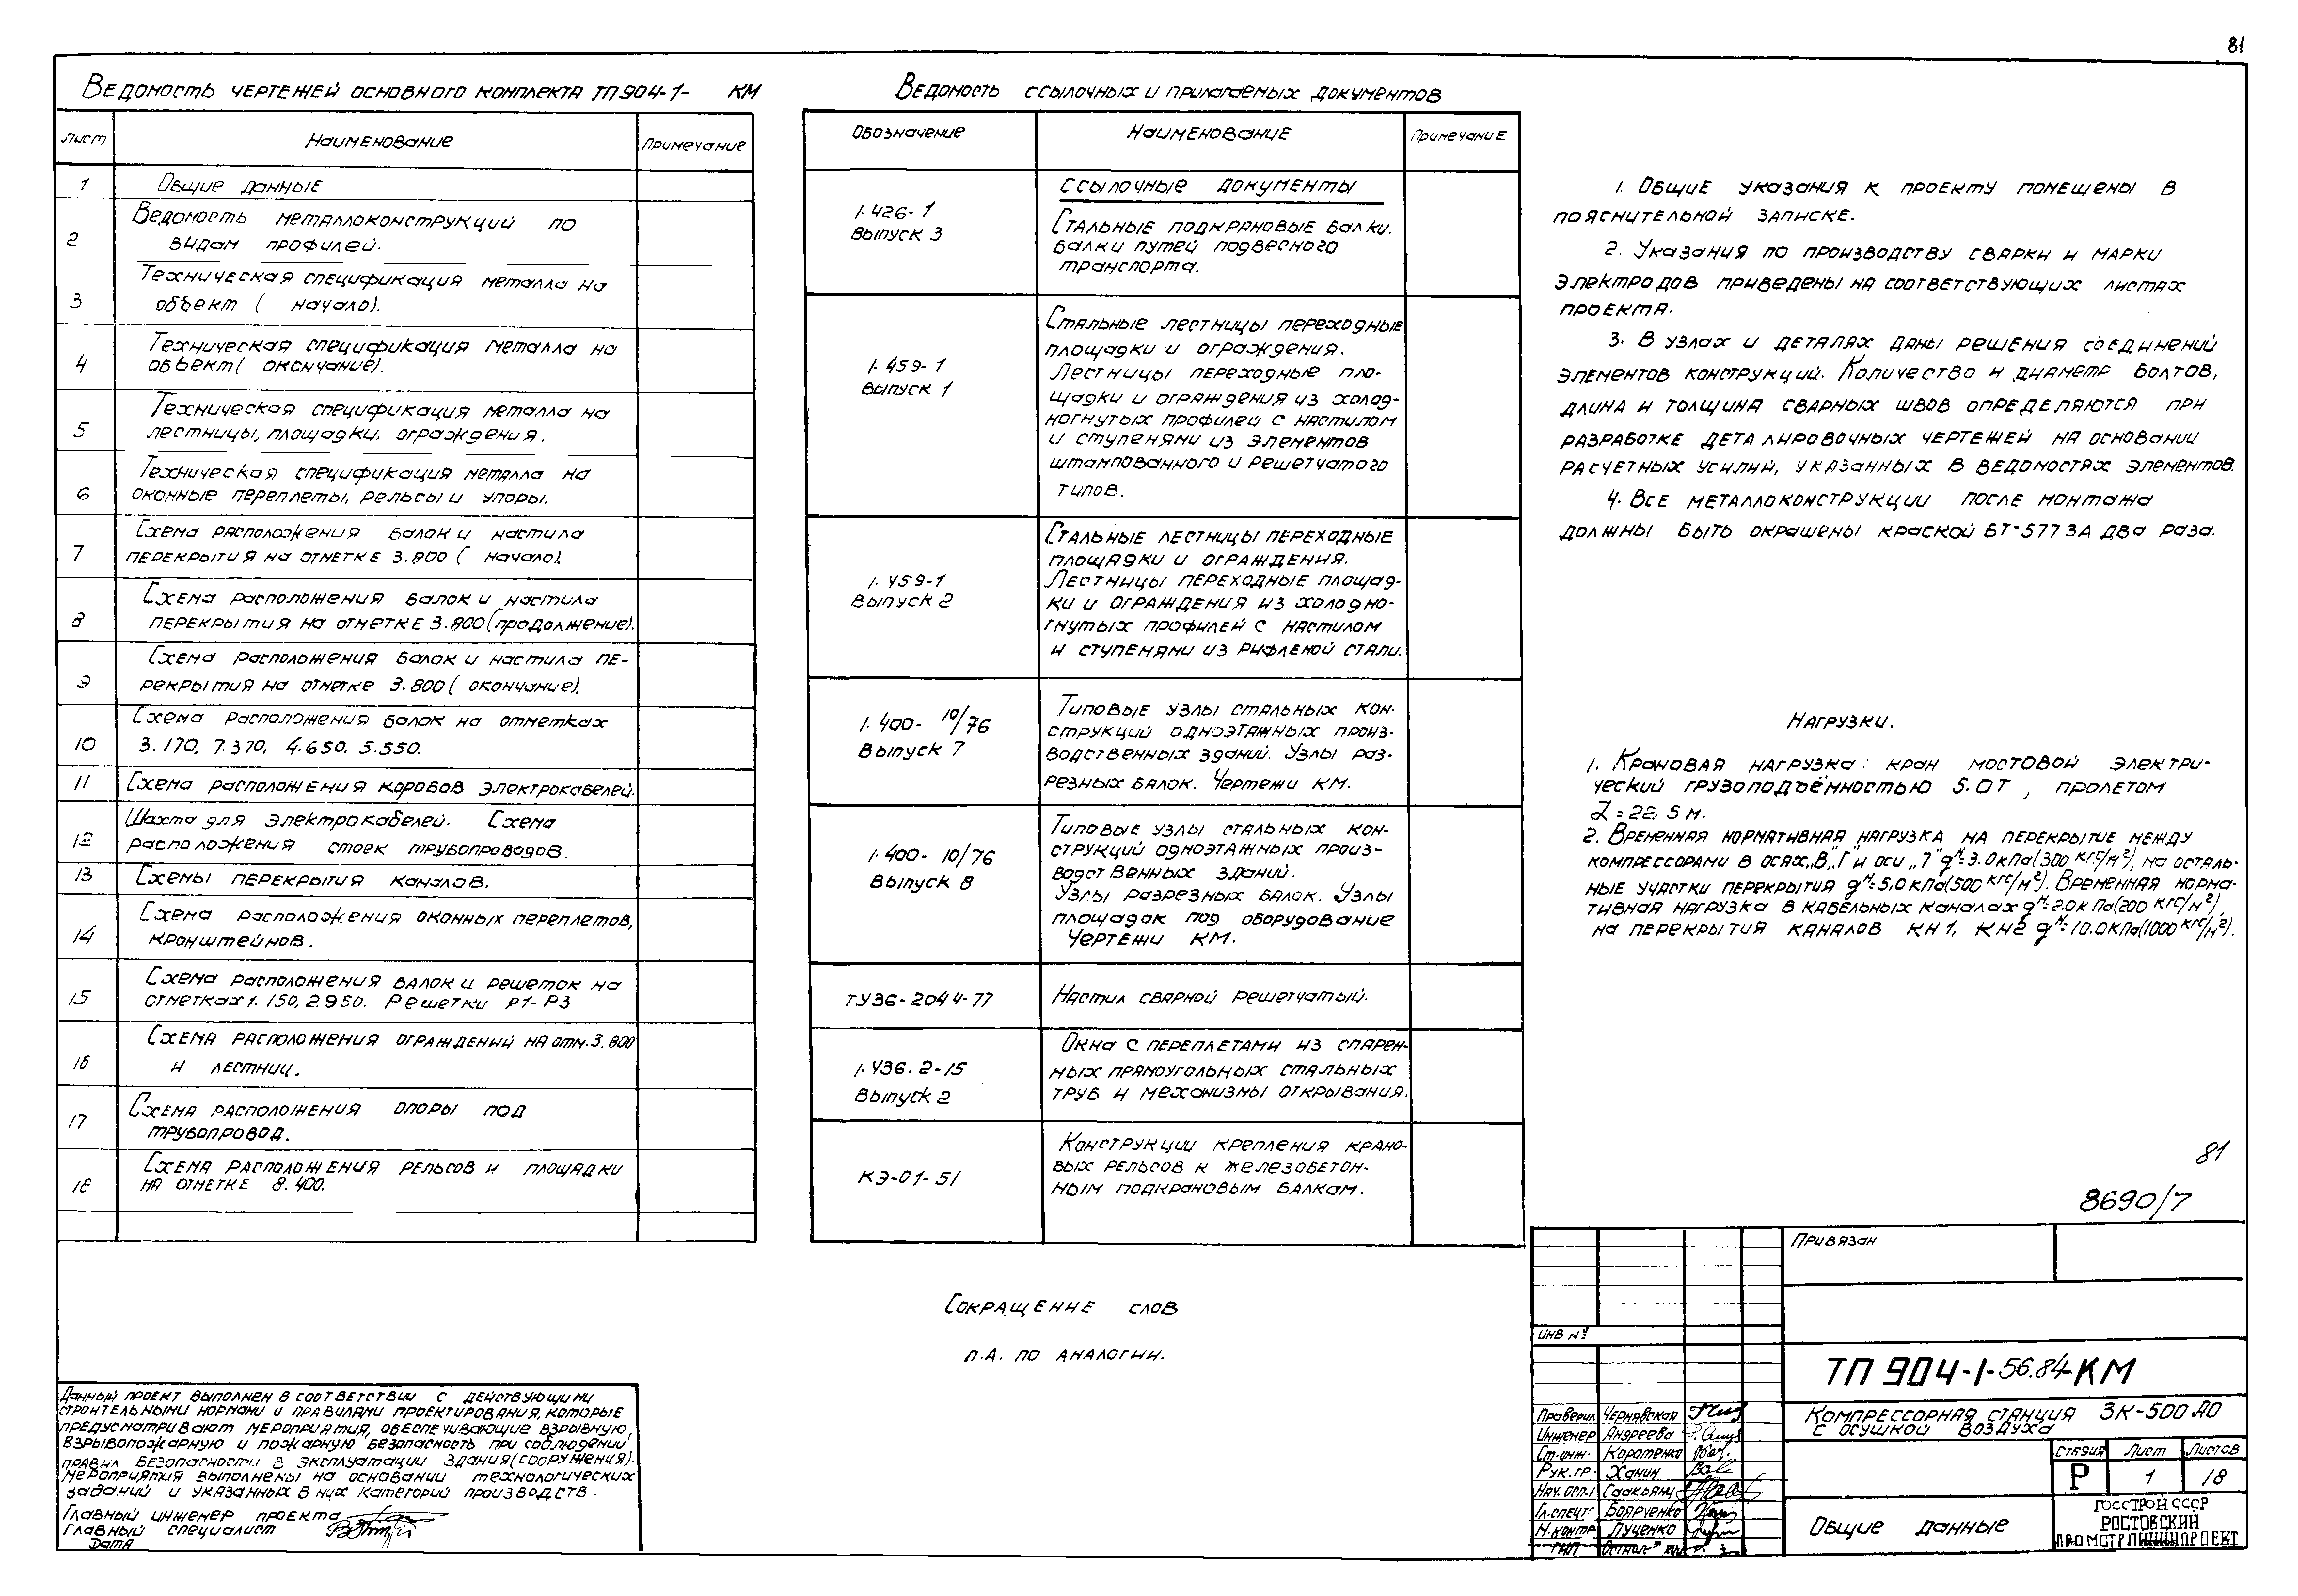 81
Ведомость чертежей основного комплекта ТП904-1- КМ
Лист Наименование Примечание
1 Общие данные
2 Ведомость металлоконструкций по
видам профилей.
3 Техническая спецификация металла на
объект ( начало).
4 Техническая спецификация металла на
объект( окончание).
5 Техническая спецификация металла на
лестницы, площадки, ограждения.
6 Техническая спецификация металла на
оконные переплеты, рельсы и упоры.
7 Схема расположения балок и настила
перекрытия на отметке 3.800 ( начало).
8 Схема расположения балок и настила
перекрытия на отметке 3.800 (продолжение).
9 Схема расположения балок и настила пе-
рекрытия на отметке 3.800 ( окончание).
10 Схема расположения балок на отметках
3.170, 7.370, 4.650, 5.550.
11 Схема расположения коробов электрокабелей.
12 Шахта для электрокабелей. Схема
расположения стоек трубопроводов.
13 Схемы перекрытия каналов.
14 Схема расположения оконных переплетов,
кронштейнов.
15 Схема расположения балок и решеток на
отметках 1.150, 2.950. Решетки Р1-Р3
16 Схема расположения ограждений на отм. 3.800
и лестниц.
17 Схема расположения опоры под
трубопровод.
18 Схема расположения рельсов и площадки
на отметке 8.400.
Ведомость ссылочных и прилагаемых документов
Обозначение Наименование Примечание
Ссылочные документы
1.426-1
Выпуск 3
Стальные подкрановые балки.
Балки путей подвесного
транспорта.
1.459-1
Выпуск 1
Стальные лестницы переходные
площадки и ограждения.
Лестницы переходные пло-
щадки и ограждения из холод-
ногнутых профилей с настилом
и ступенями из элементов
штампованного и решетчатого
типов.
1.459-1
Выпуск 2
Стальные лестницы переходные
площадки и ограждения.
Лестницы переходные площад-
ки и ограждения из холодно-
гнутых профилей с настилом
и ступенями из рифленой стали.
1.400-10/76
Выпуск 7
Типовые узлы стальных кон-
струкций одноэтажных произ-
водственных зданий. Узлы раз-
резных балок. Чертежи КМ.
1.400-10/76
Выпуск 8
Типовые узлы стальных кон-
струкций одноэтажных произ-
водственных зданий.
Узлы разрезных балок. Узлы
площадок под оборудование
Чертежи КМ.
ТУ36-2044-77 Настил сварной решетчатый.
1.436.2-15
Выпуск 2
Окна с переплетами из спарен-
ных прямоугольных стальных
труб и механизмы открывания.
КЭ-01-51
Конструкции крепления крано-
вых рельсов к железобетон-
ным подкрановым балкам.
Сокращение слов
п.А. по аналогии.
1. Общие указания к проекту помещены в
пояснительной записке.
2. Указания по производству сварки и марки
электродов приведены на соответствующих листах
проекта.
3. В узлах и деталях даны решения соединений
элементов конструкций. Количество и диаметр болтов,
длина и толщина сварных швов определяются при
разработке деталировочных чертежей на основании
расчетных усилий, указанных в ведомостях элементов.
4. Все металлоконструкции после монтажа
должны быть окрашены краской БТ-577 за два раза.
Нагрузки.
1. Крановая нагрузка: кран мостовой электри-
ческий грузоподъёмностью 5.0т, пролетом
L=22,5 м.
2. Временная нормативная нагрузка на перекрытие между
компрессорами в осях „В", „Г" и оси „7" qн=3.0кПа(300 кгс/м²), на осталь-
ные участки перекрытия qн=5.0кПа(500 кгс/м²). Временная норма-
тивная нагрузка в кабельных каналах qн=2.0кПа(200 кгс/м²),
на перекрытия каналов КН1, КН2 qн=10.0кПа(1000 кгс/м²).
81
8690/7
Данный проект выполнен в соответствии с действующими
строительными нормами и правилами проектирования, которые
предусматривают мероприятия, обеспечивающие взрывную,
взрывопожарную и пожарную безопасность при соблюдении
правил безопасности в эксплуатации здания(сооружения).
Мероприятия выполнены на основании технологических
заданий и указанных в них категорий производств.
Главный инженер проекта
Главный специалист
Дата
Привязан
Инв №
ТП 904-1-56.84-КМ
Проверил Чернявская
Инженер Андреева
Ст. инж. Коротенко
Рук. гр. Ханин
Нач. осп-1 Саакьянц
Гл. спец. Боярченко
Н. контр Луценко
ГИП
Компрессорная станция 3К-500 АО
с осушкой воздуха
Стадия Лист Листов
Р 1 18
Общие данные
Госстрой СССР
Ростовский
Промстройниипроект